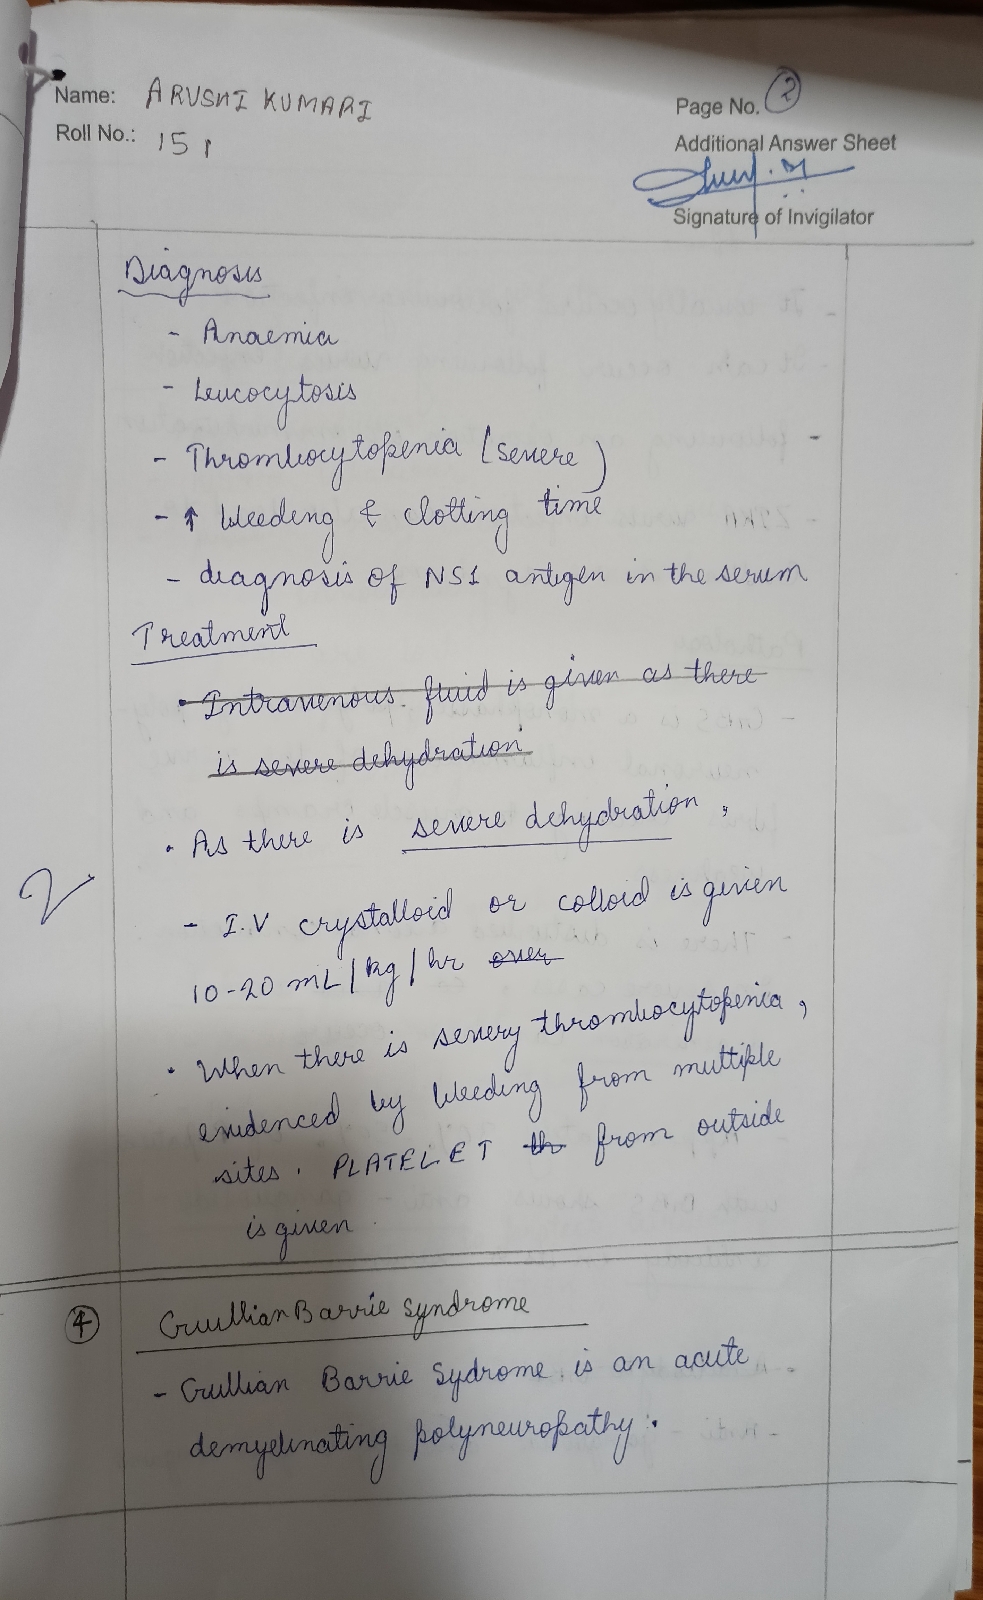 Name: ARUSHI KUMARI
Page No. 2
Roll No.: 151
Additional Answer Sheet
Signature of Invigilator
Diagnosis
- Anaemia
- Leucocytosis
- Thrombocytopenia (severe)
- ↑ bleeding & clotting time
- diagnosis of NS1 antigen in the serum
Treatment
• Intravenous fluid is given as there
is severe dehydration
• As there is severe dehydration,
- I.V crystalloid or colloid is given
10-20 mL/kg/hr over
2
• When there is severy thrombocytopenia,
evidenced by bleeding from multiple
sites. PLATELET th from outside
is given
4 Guullian Barrie syndrome
- Gullian Barrie Sydrome is an acute
demyelinating polyneuropathy.